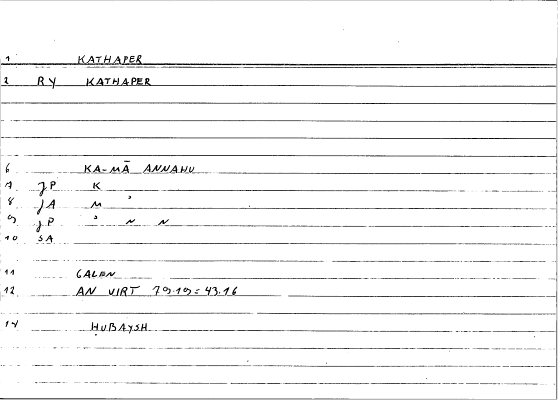 1 KATHAPER
2 RY KATHAPER
6 KA-MĀ ANNAHU
7 JP K
8 JA M ʾ
9 JP ʾ N N
10 SA
11 GALEN
12 AN VIRT 79.19 = 43.16
14 ḤUBAYSH